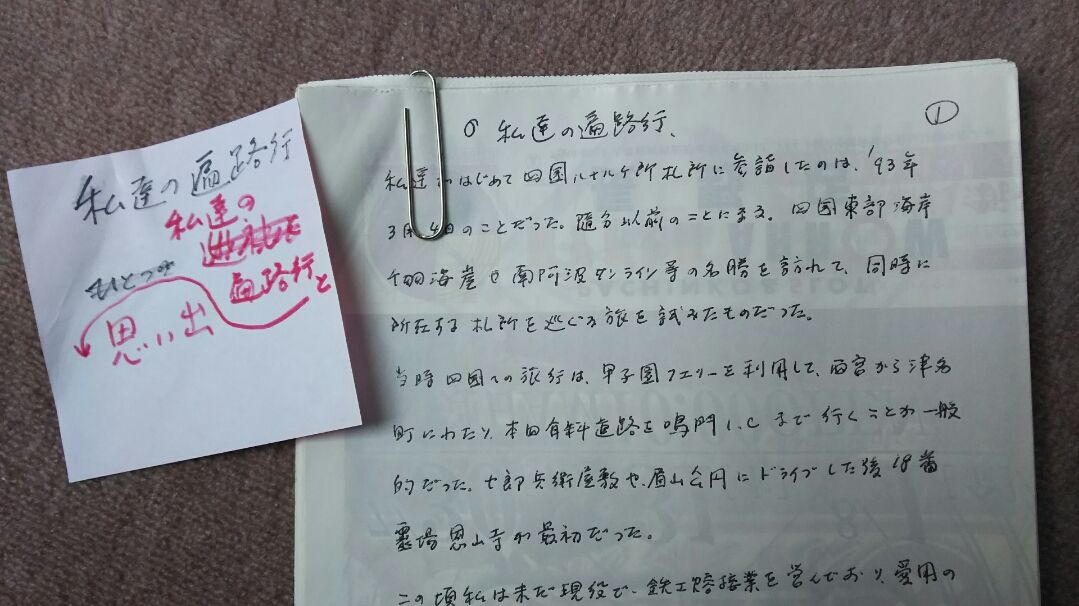 私達の遍路行
私達の
遍路行と
もひとつの
思い出
①
〇 私達の遍路行、
私達がはじめて四国八十八ケ所札所に参詣したのは、'93年
3月4日のことだった。随分以前のことになる。四国東部海岸
海崖や南阿波サンライン等の名勝を訪れて、同時に
所在する札所を巡ぐる旅を試みたものだった。
当時四国への旅行は、甲子園フエリーを利用して、西宮から津名
町にわたり、本四有料道路を鳴門I.Cまで行くことが一般
的だった。十郎兵衛屋敷や、眉山公円にドライブした後18番
霊場恩山寺が最初だった。
この頃私は未だ現役で、鉄工熔接業を営んでおり、愛用の